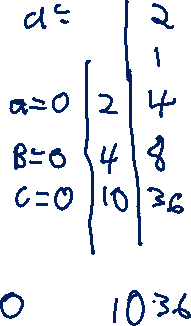 a= | 2
| 1
a=0 | 2 | 4
B=0 | 4 | 8
C=0 | 10 | 36
0 10.36